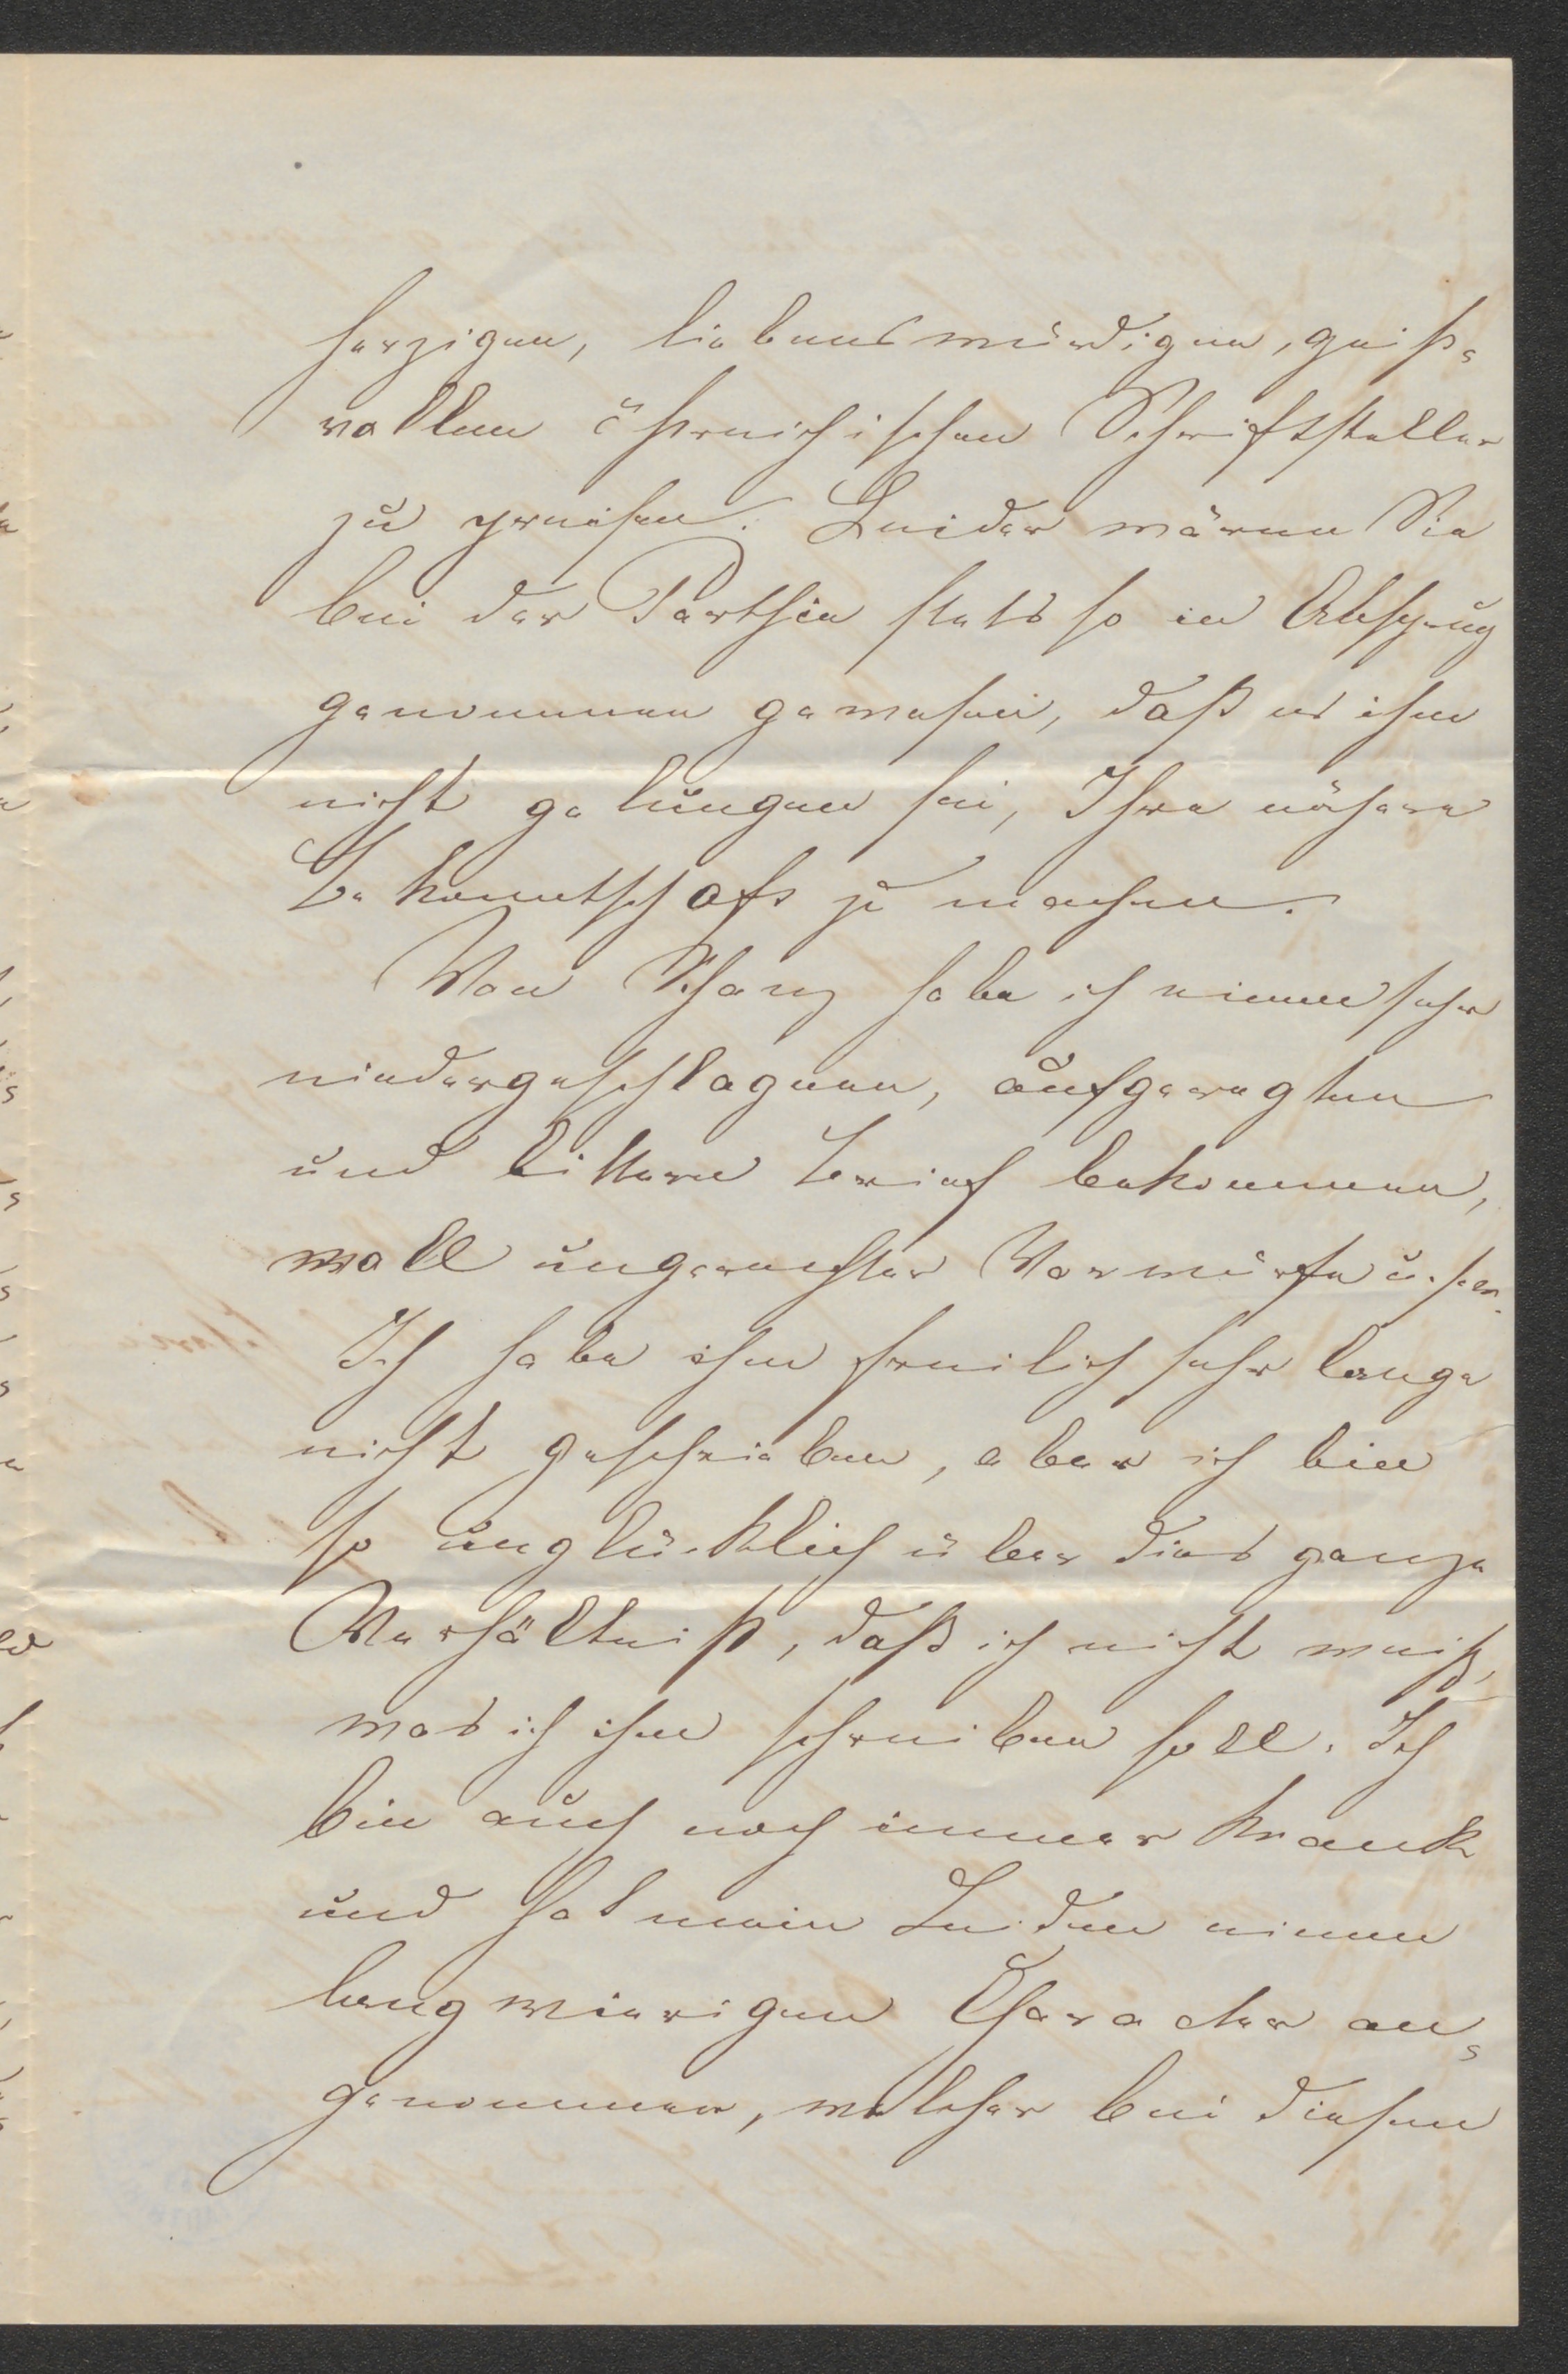 herzigen, liebenswürdigen, geist-
vollen östreichischen Schriftsteller
zu preisen. Leider wären Sie
bei der Parthie stets so in Absprug
genommen gewesen, daß es ihm
nicht gelungen sei, Ihre nähere
Bekanntschaft zu machen.
Von Schanz habe ich einen sehr
niedergeschlagenen, aufgeregten
und bittern Brief bekommen,
voll ungerechter Vorwürfe u.s.w.
Ich habe ihm freilich sehr lange
nicht geschrieben, aber ich bin
so unglücklich über dies ganze
Verhältniß, daß ich nicht weiß,
was ich ihm schreiben soll. Ich
bin auch noch immer krank
und hat mein Leiden einen
langwierigen Character an-
genommen, welcher bei diesem